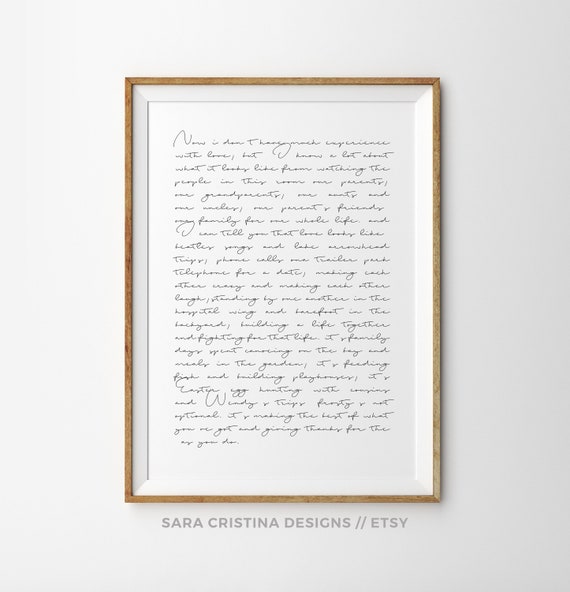 Now i don't have much experience
with love, but I know a lot about
what it looks like from watching the
people in this room our parents,
our grandparents, our aunts and
our uncles, our parent's friends
our family for our whole life. and
I can tell you that love looks like
beatles songs and lake arrowhead
trips, phone calls on a trailer park
telephone for a date, making each
other crazy and making each other
laugh, standing by one another in the
hospital wing and barefoot in the
backyard, building a life together
and fighting for that life. it s family
days spent canoeing on the bay and
meals in the garden, it s feeding
fish and building playhouses, it s
Easter egg hunting with cousins
and Wendy s trips frosty s not
optional. it s making the best of what
you ve got and giving thanks for the
as you do.
SARA CRISTINA DESIGNS // ETSY